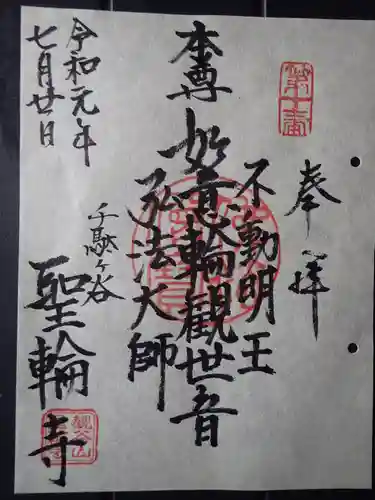 第十番
奉拝
不動明王
本尊 如意輪観世音
弘法大師
千駄ヶ谷
聖輪寺
令和元年
七月廿日
観谷山